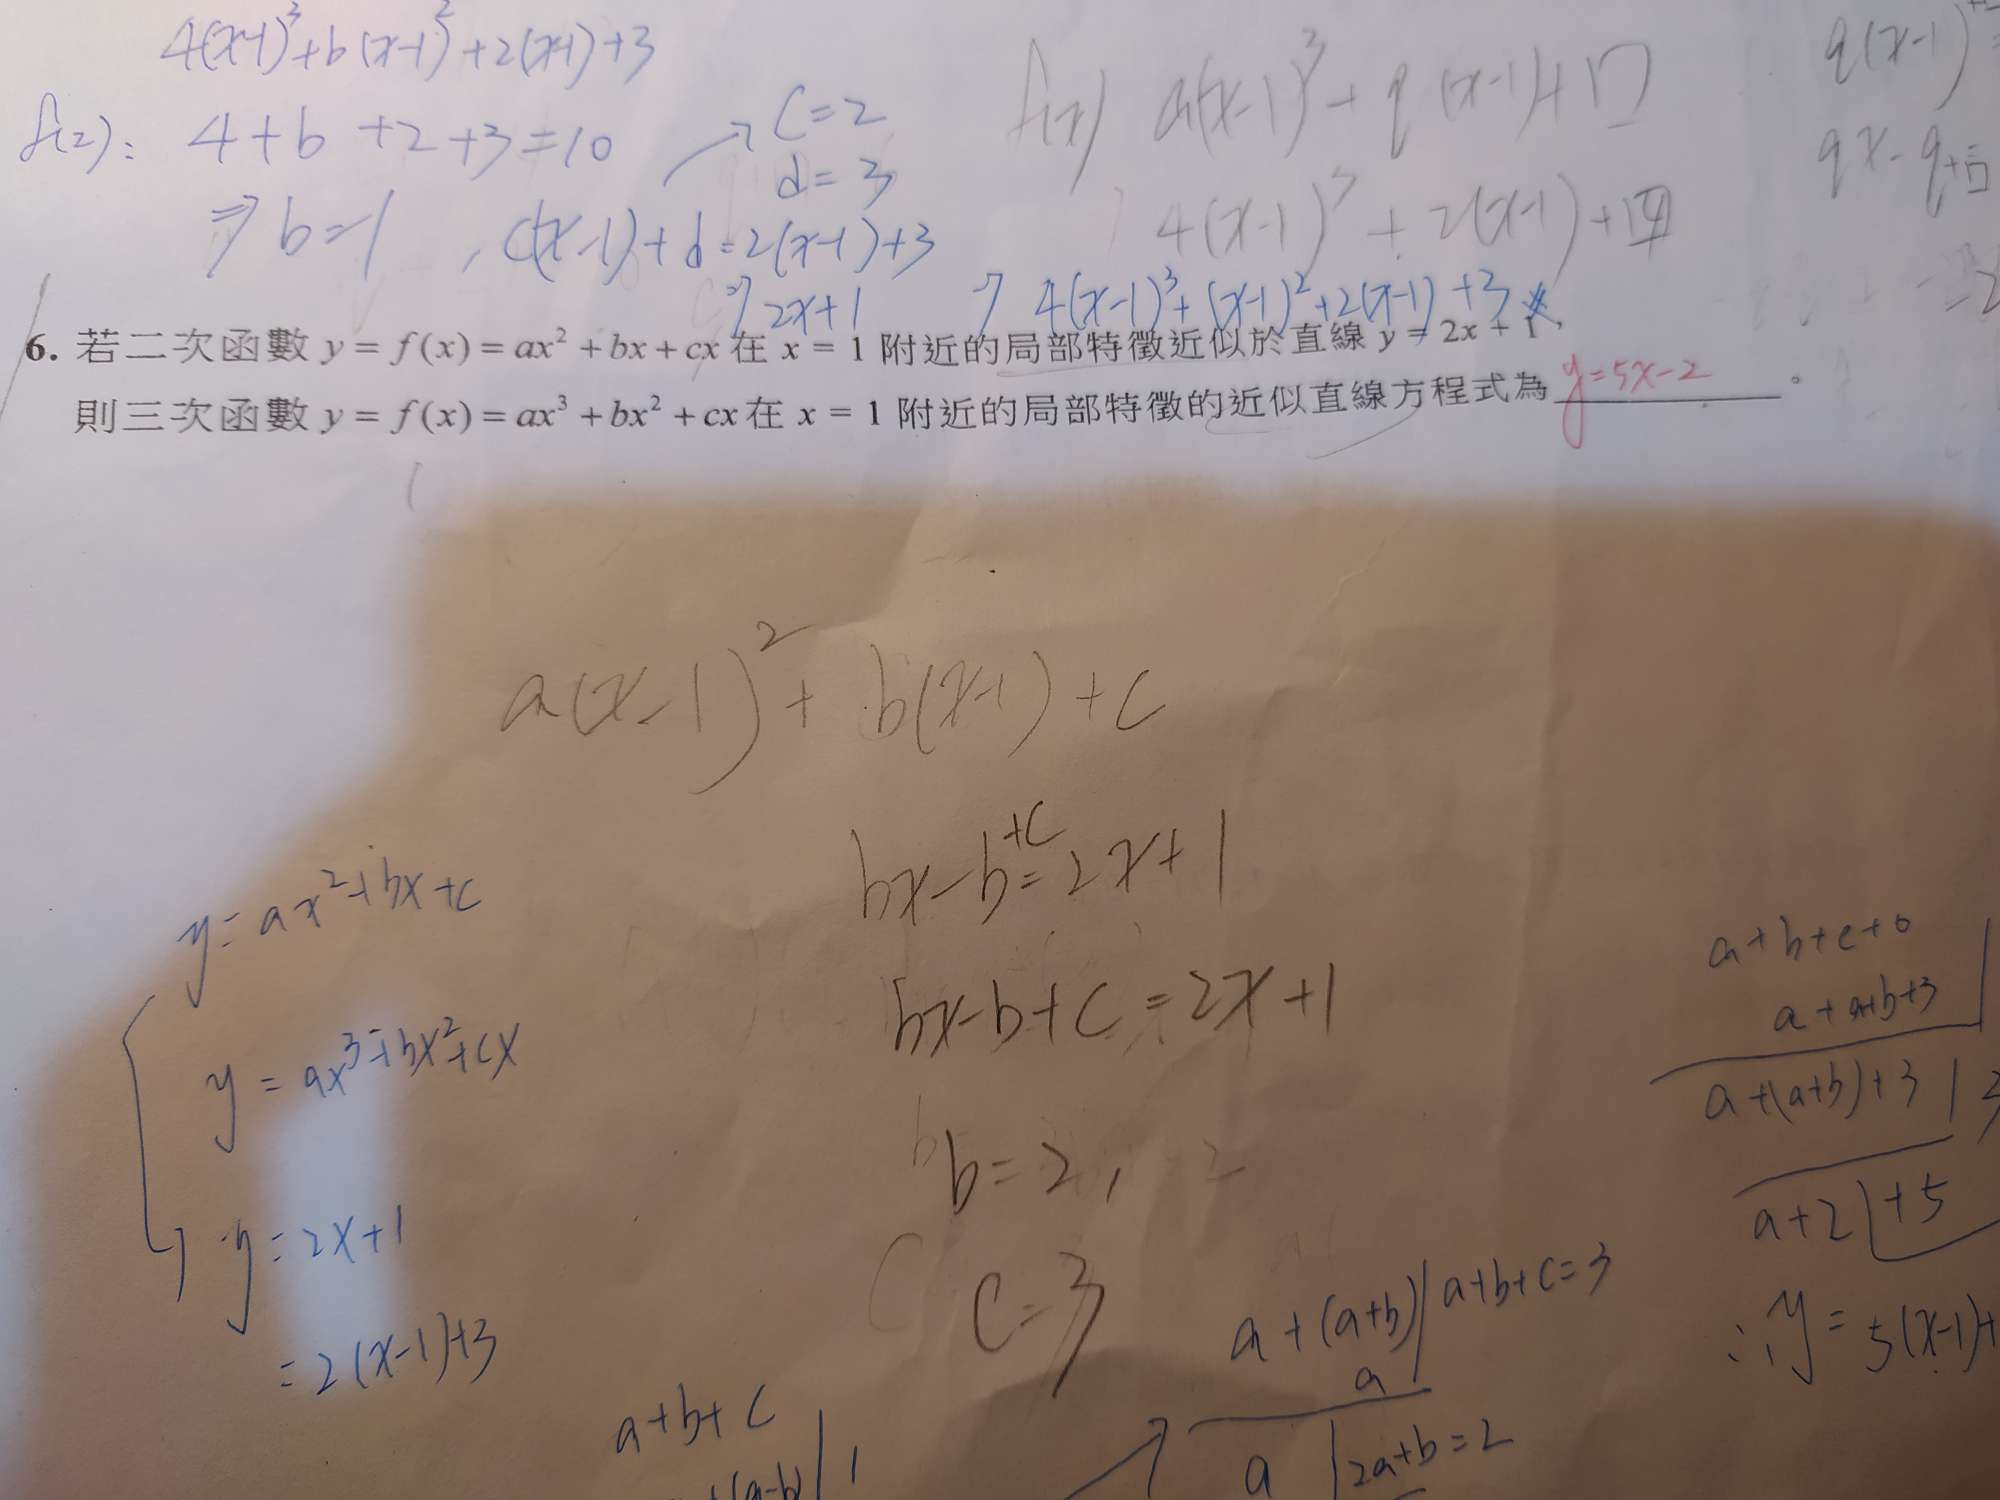 4(x-1)³+b(x-1)²+2(x-1)+3
f(2): 4+b+2+3=10
⇒ b=1, c(x-1)+d=2(x-1)+3
→ c=2
d=3
⇒ 2x+1
f(x) a(x-1)³+q(x-1)+□
4(x-1)³+2(x-1)+
⇒ 4(x-1)³+(x-1)²+2(x-1)+3
q(x-1)
qx-q+□
6. 若二次函數 y = f(x) = ax² + bx + cx 在 x = 1 附近的局部特徵近似於直線 y = 2x + 1,
則三次函數 y = f(x) = ax³ + bx² + cx 在 x = 1 附近的局部特徵的近似直線方程式為 y=5x-2 。
a(x-1)²+b(x-1)+c
bx-b+c=2x+1
bx-b+c=2x+1
b=2,
c=3
y=ax²+bx+c
y=ax³+bx²+cx
y=2x+1
=2(x-1)+3
a+b+c
a+(a+b)|a+b+c=3
a
a |2a+b=2
a+b+c+0
a+a+b+3
a+(a+b)+3 | 3
a+2 |+5
∴ y=5(x-1)+